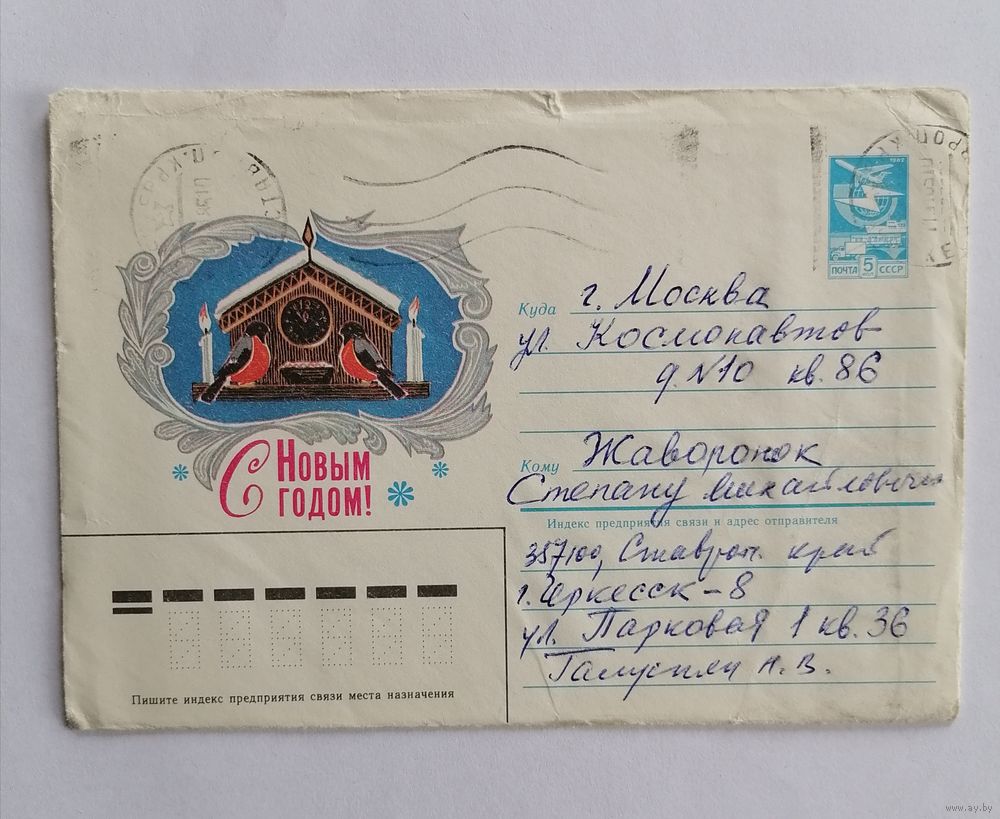 1982
ПОЧТА 5 КОП СССР
Куда г. Москва
ул. Космонавтов
д. №10 кв. 86
Кому Жаворонок
Степану Михайловичу
С НОВЫМ
ГОДОМ!
Индекс предприятия связи и адрес отправителя
357100, Ставроп. край
г. Черкесск-8
ул. Парковая 1 кв. 36
А. В.
Пишите индекс предприятия связи места назначения
www.ay.by